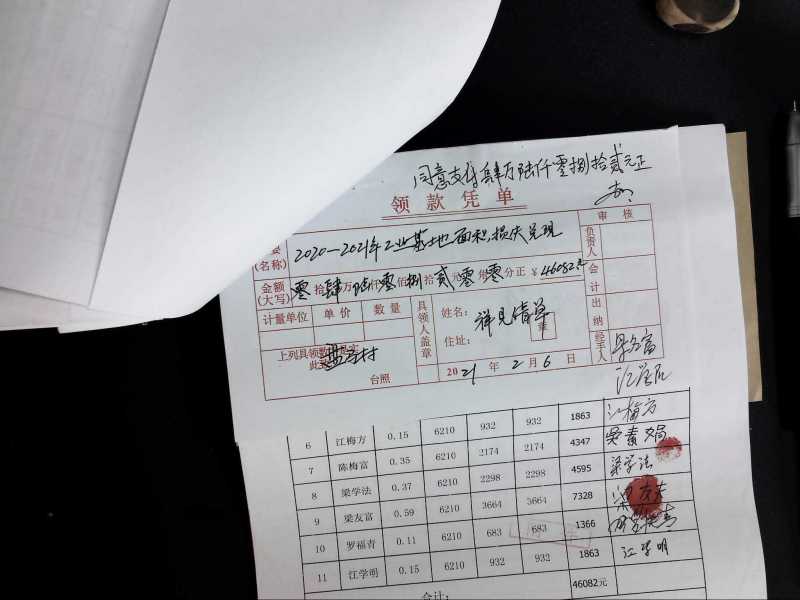 同意支付肆万陆仟零捌拾贰元正
领款凭单
审核
(名称) 2020—2021年工业基地面积,损失兑现
负责人
金额(大写) 零拾肆万陆仟零佰捌拾贰元零角零分正 ¥46082元
会计
计量单位 单价 数量 具领人盖章 姓名: 详见清单 章
住址:
出纳
上列具领数
台照
2021年2月6日
经手人
6 江梅方 0.15 6210 932 932 1863 江梅方
7 陈梅富 0.35 6210 2174 2174 4347
8 梁学法 0.37 6210 2298 2298 4595 梁学法
9 梁友富 0.59 6210 3664 3664 7328
10 罗福青 0.11 6210 683 683 1366
11 江学明 0.15 6210 932 932 1863 江学明
合计: 46082元